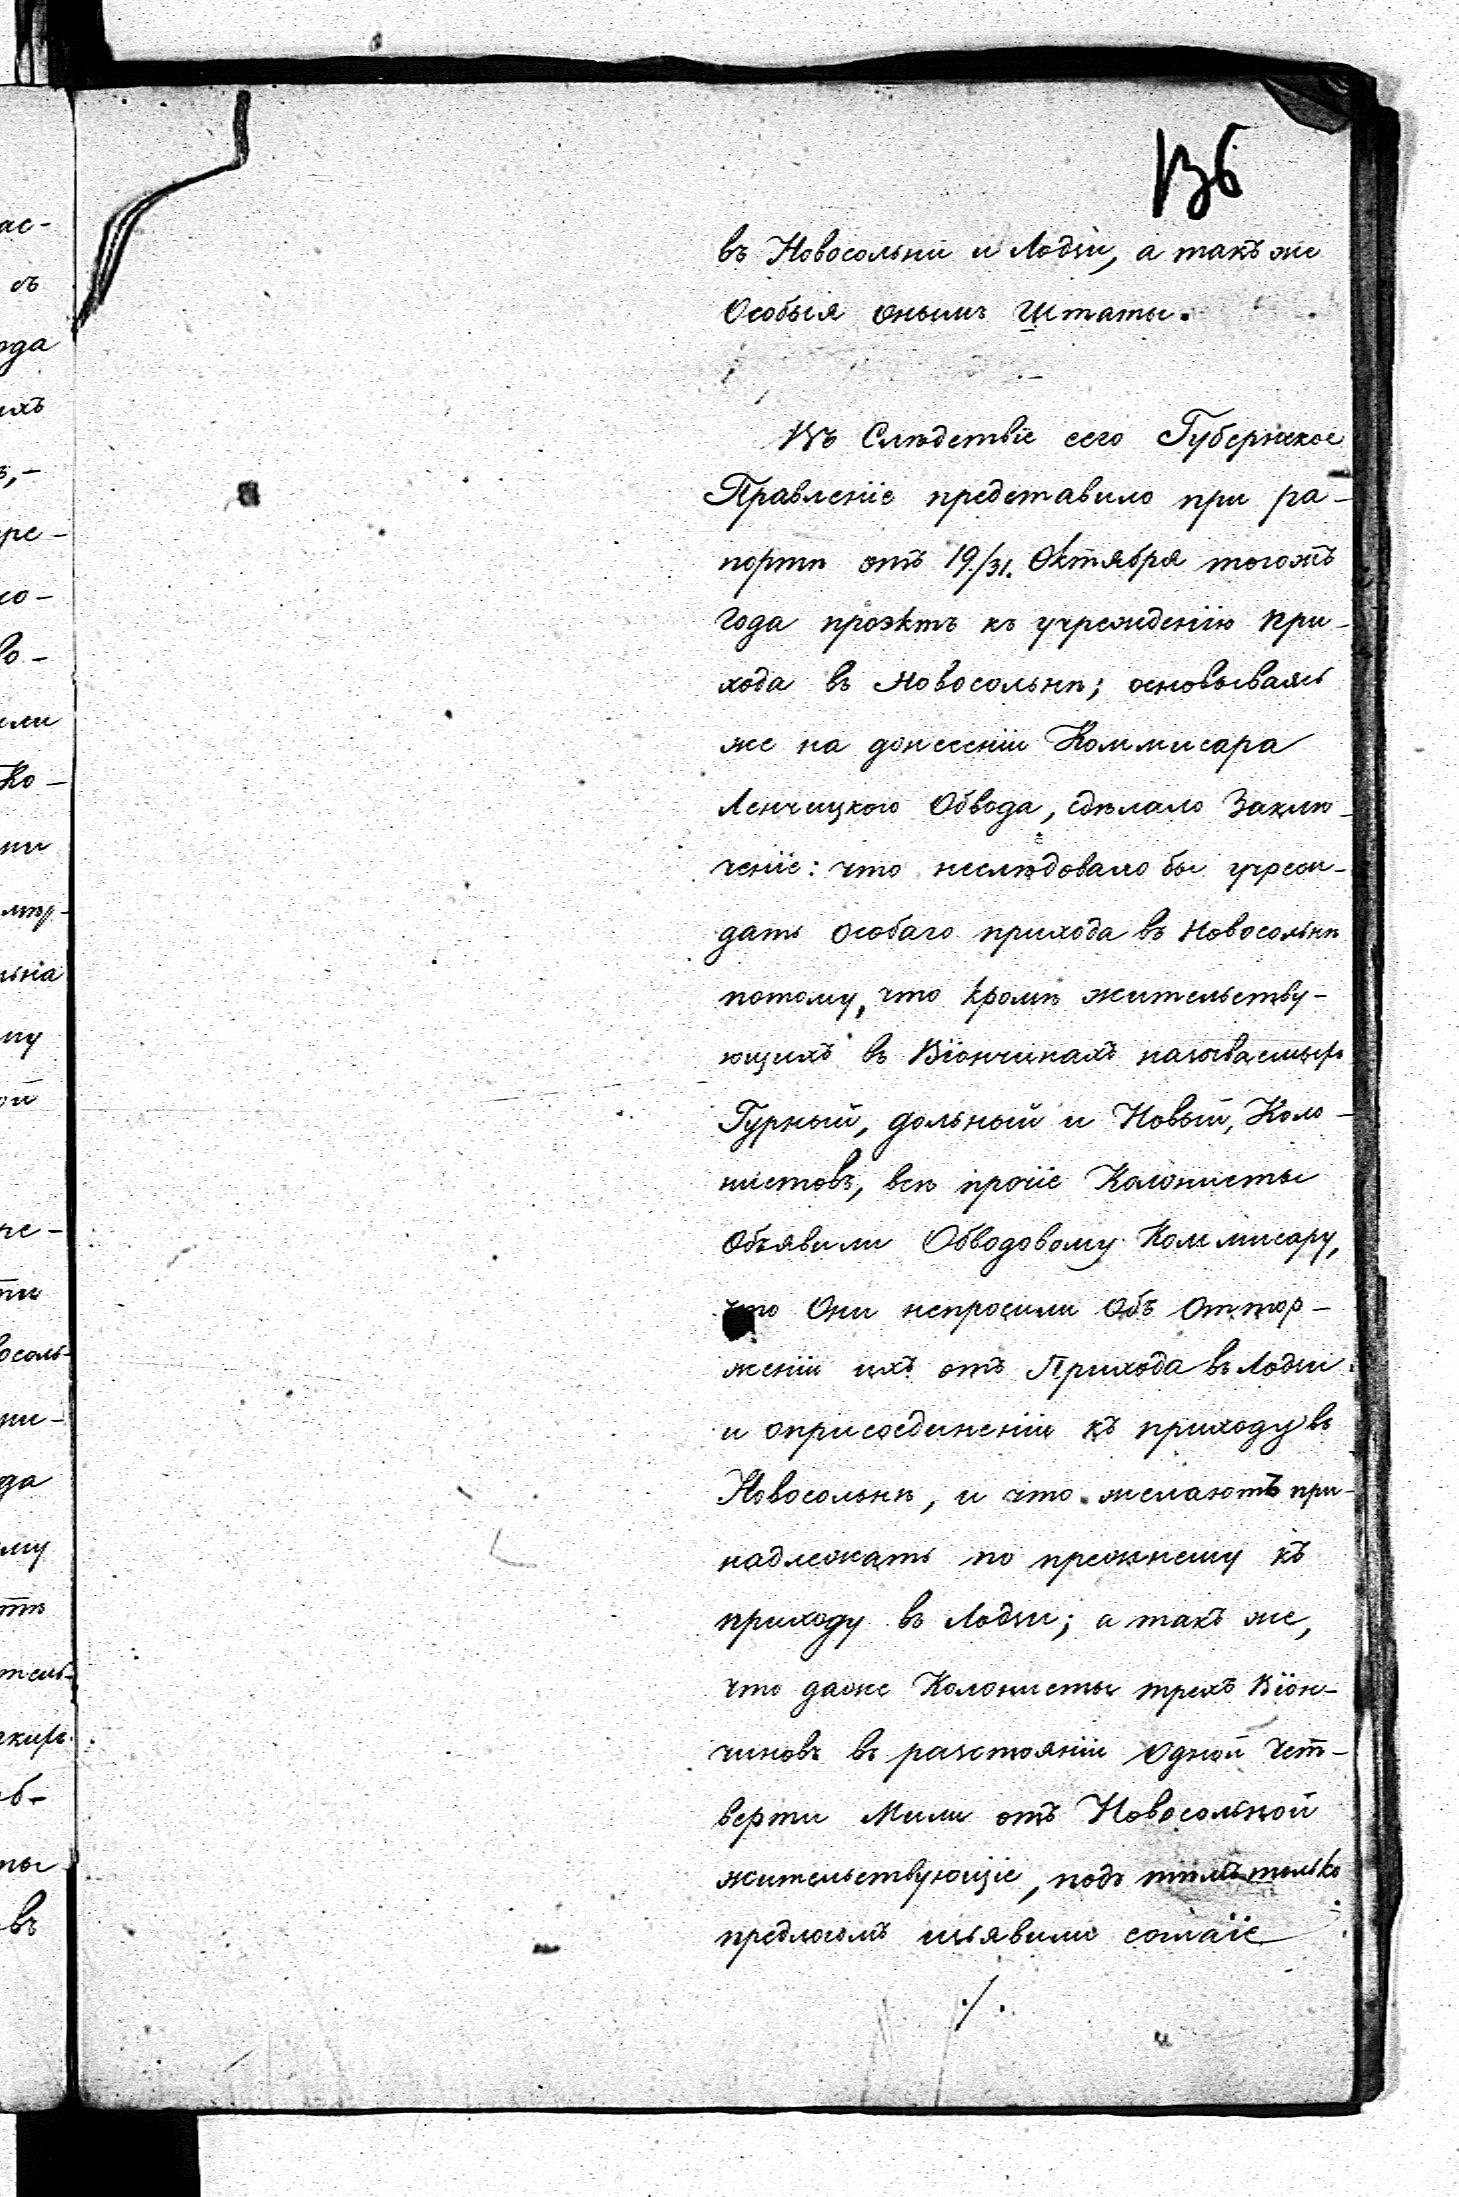 136
въ Новосольни и Лодзи, а такъ же
Особыя онымъ Штаты.
Въ Слѣдствіе сего Губернское
Правленіе представило при ра-
портѣ отъ 19./31. Октября тогожъ
года проэктъ къ учрежденію при-
хода въ Новосольнѣ; основываясь
же на донесеніи Коммисара
Ленчицкого Обвода, сдѣлало Заклю-
ченіе: что неслѣдовало бы учреж-
дать особаго прихода въ Новосольнѣ
потому, что кромѣ жительству-
ющихъ въ Віончинахъ называемыхъ
Гурный, дольный и Новый, Коло-
нистовъ, всѣ прочіе Колонисты
Объявили Обводовому Коммисару,
что Они непросили Объ Оттор-
женіи ихъ отъ Прихода въ Лодзи
и оприсоединеніи къ приходу въ
Новосольнѣ, и что желаютъ при-
надлежать по прежнему къ
приходу въ Лодзи; а такъ же,
что даже Колонисты трехъ Віон-
чиновъ въ разстояніи одной Чет-
верти Мили отъ Новосольной
жительствующіе, подъ тѣмъ только
предлогомъ изъявили согласіе
./.
ас-
съ
ода
ихъ
ре-
со-
во-
или
Ко-
ни
льна
ну
ой
не-
ти
восоль-
ни-
да
му
тѣ
тель-
об-
ты
въ